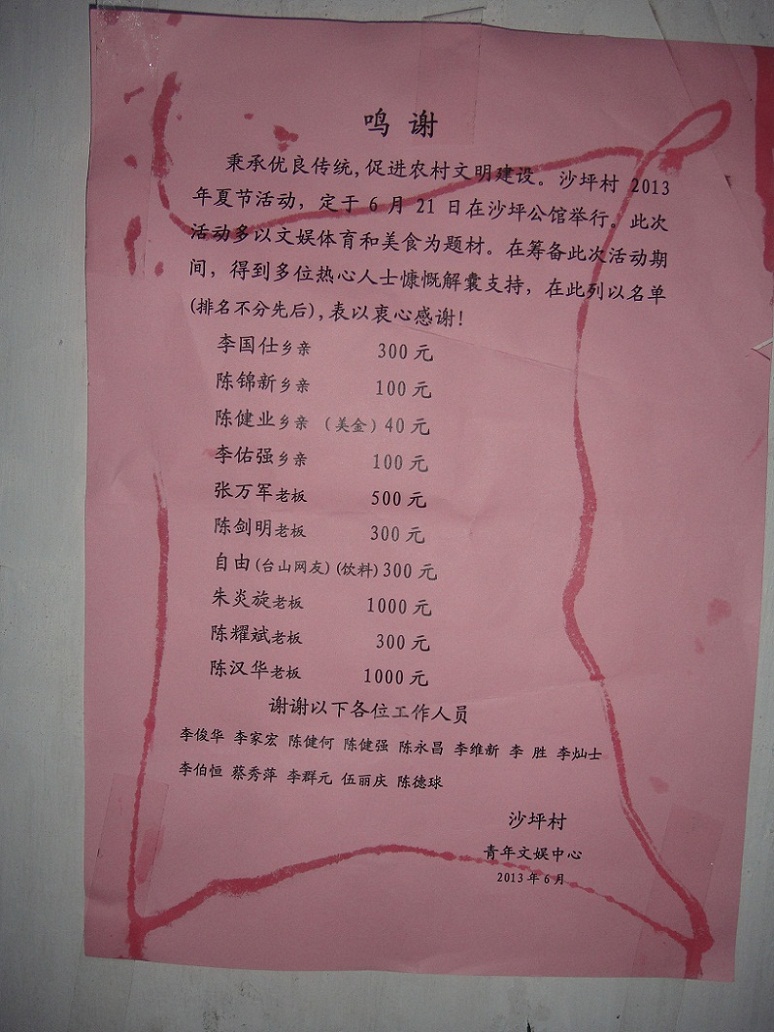 鸣 谢
秉承优良传统,促进农村文明建设。沙坪村 2013
年夏节活动,定于 6 月 21 日在沙坪公馆举行。此次
活动多以文娱体育和美食为题材。在筹备此次活动期
间,得到多位热心人士慷慨解囊支持,在此列以名单
(排名不分先后),表以衷心感谢!
李国仕乡亲 300 元
陈锦新乡亲 100 元
陈健业乡亲 (美金) 40 元
李佑强乡亲 100 元
张万军老板 500 元
陈剑明老板 300 元
自由(台山网友)(饮料)300 元
朱炎旋老板 1000 元
陈耀斌老板 300 元
陈汉华老板 1000 元
谢谢以下各位工作人员
李俊华 李家宏 陈健何 陈健强 陈永昌 李维新 李 胜 李灿士
李伯恒 蔡秀萍 李群元 伍丽庆 陈德球
沙坪村
青年文娱中心
2013 年 6 月